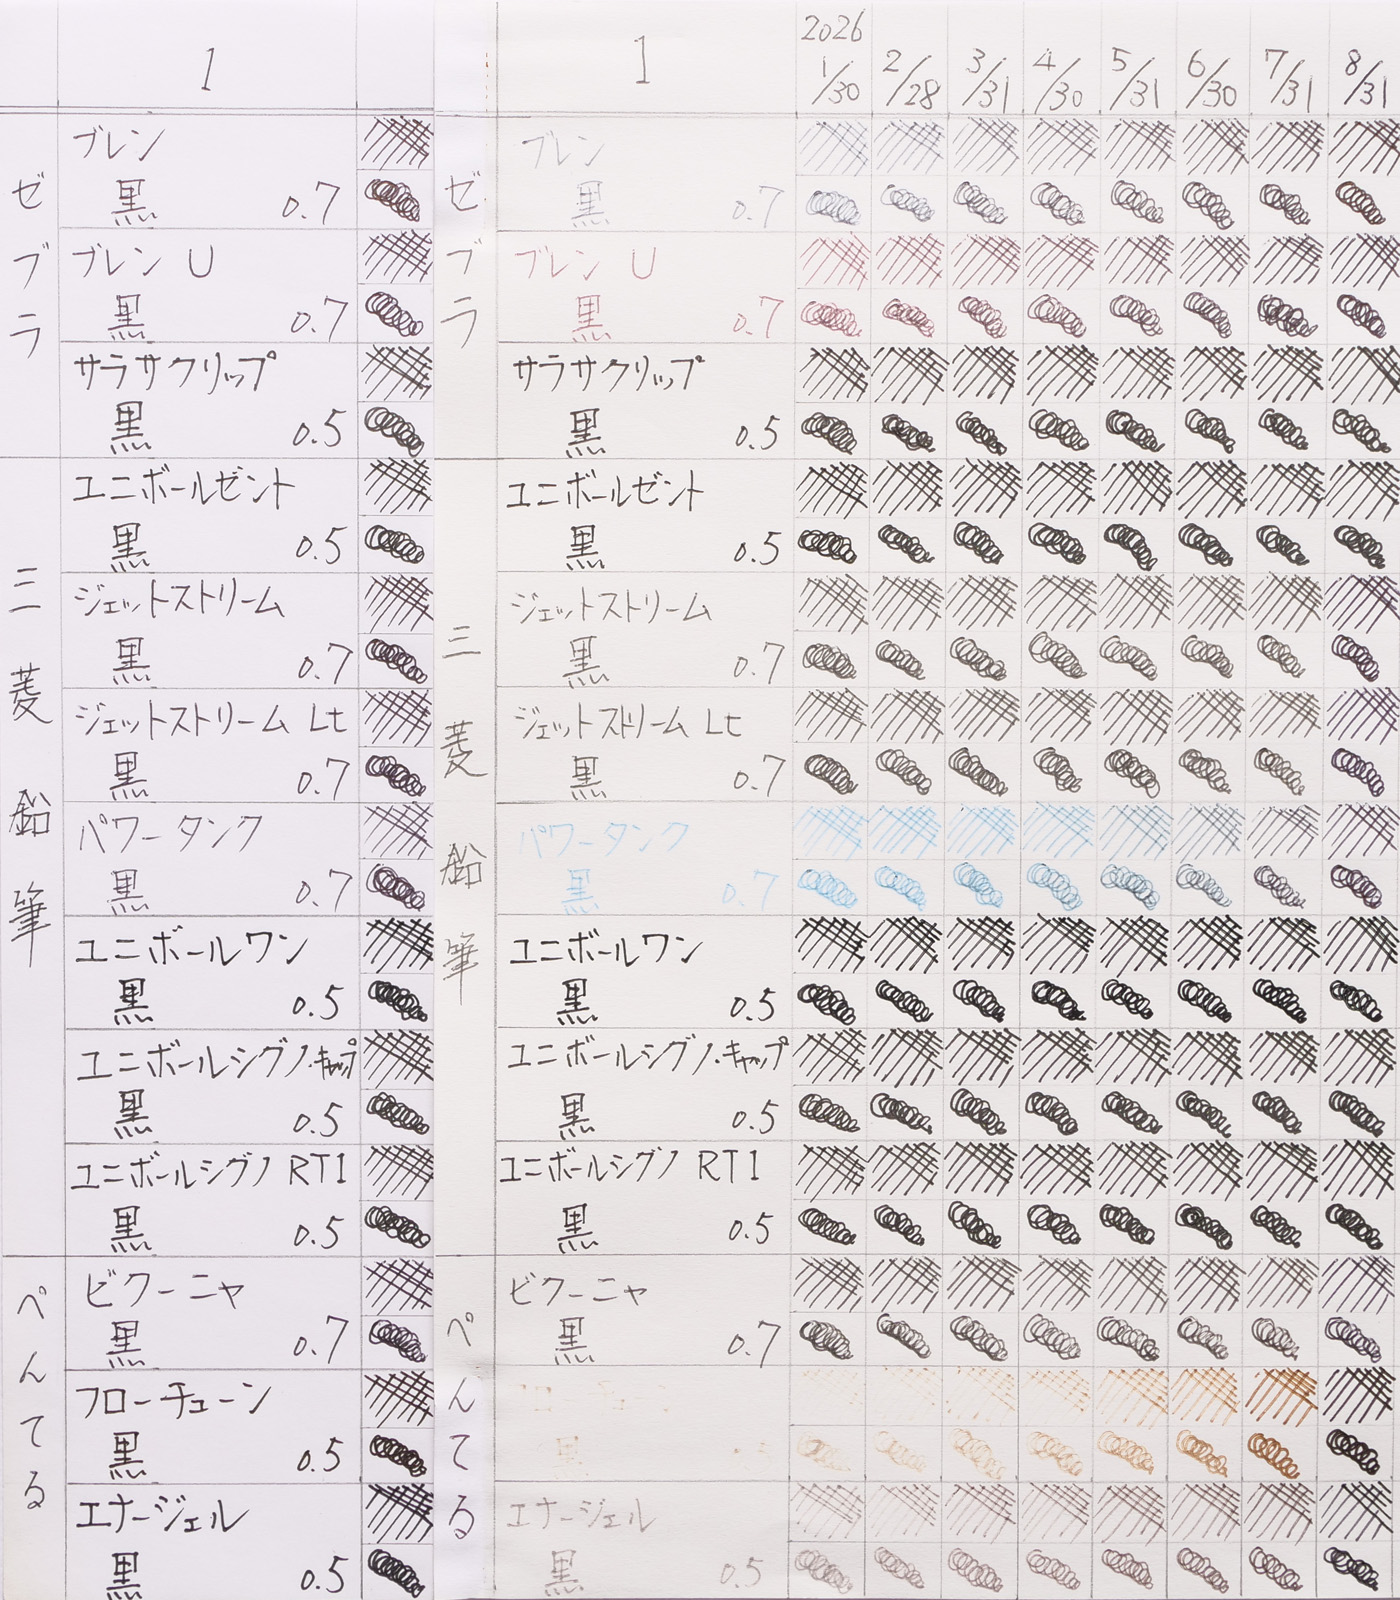 1
ゼブラ
ブレン
黒 0.7
ブレン U
黒 0.7
サラサクリップ
黒 0.5
三菱鉛筆
ユニボールゼント
黒 0.5
ジェットストリーム
黒 0.7
ジェットストリーム Lt
黒 0.7
パワータンク
黒 0.7
ユニボールワン
黒 0.5
ユニボールシグノ・キャップ
黒 0.5
ユニボールシグノ RT1
黒 0.5
ぺんてる
ビクーニャ
黒 0.7
フローチューン
黒 0.5
エナージェル
黒 0.5
1
2026
1/30 2/28 3/31 4/30 5/31 6/30 7/31 8/31
ゼブラ
ブレン
黒 0.7
ブレン U
黒 0.7
サラサクリップ
黒 0.5
三菱鉛筆
ユニボールゼント
黒 0.5
ジェットストリーム
黒 0.7
ジェットストリーム Lt
黒 0.7
パワータンク
黒 0.7
ユニボールワン
黒 0.5
ユニボールシグノ・キャップ
黒 0.5
ユニボールシグノ RT1
黒 0.5
ぺんてる
ビクーニャ
黒 0.7
黒
エナージェル
黒 0.5